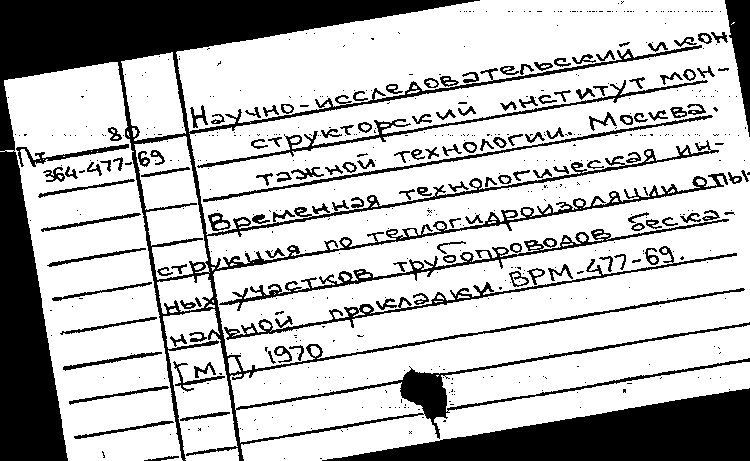 Научно-исследовательский и кон-
структорский институт мон-
тажной технологии. Москва.
Пт 80
364-477-69
Временная технологическая ин-
струкция по теплогидроизоляции опы
ных участков трубопроводов беска-
нальной прокладки. ВРМ-477-69.
[М.], 1970